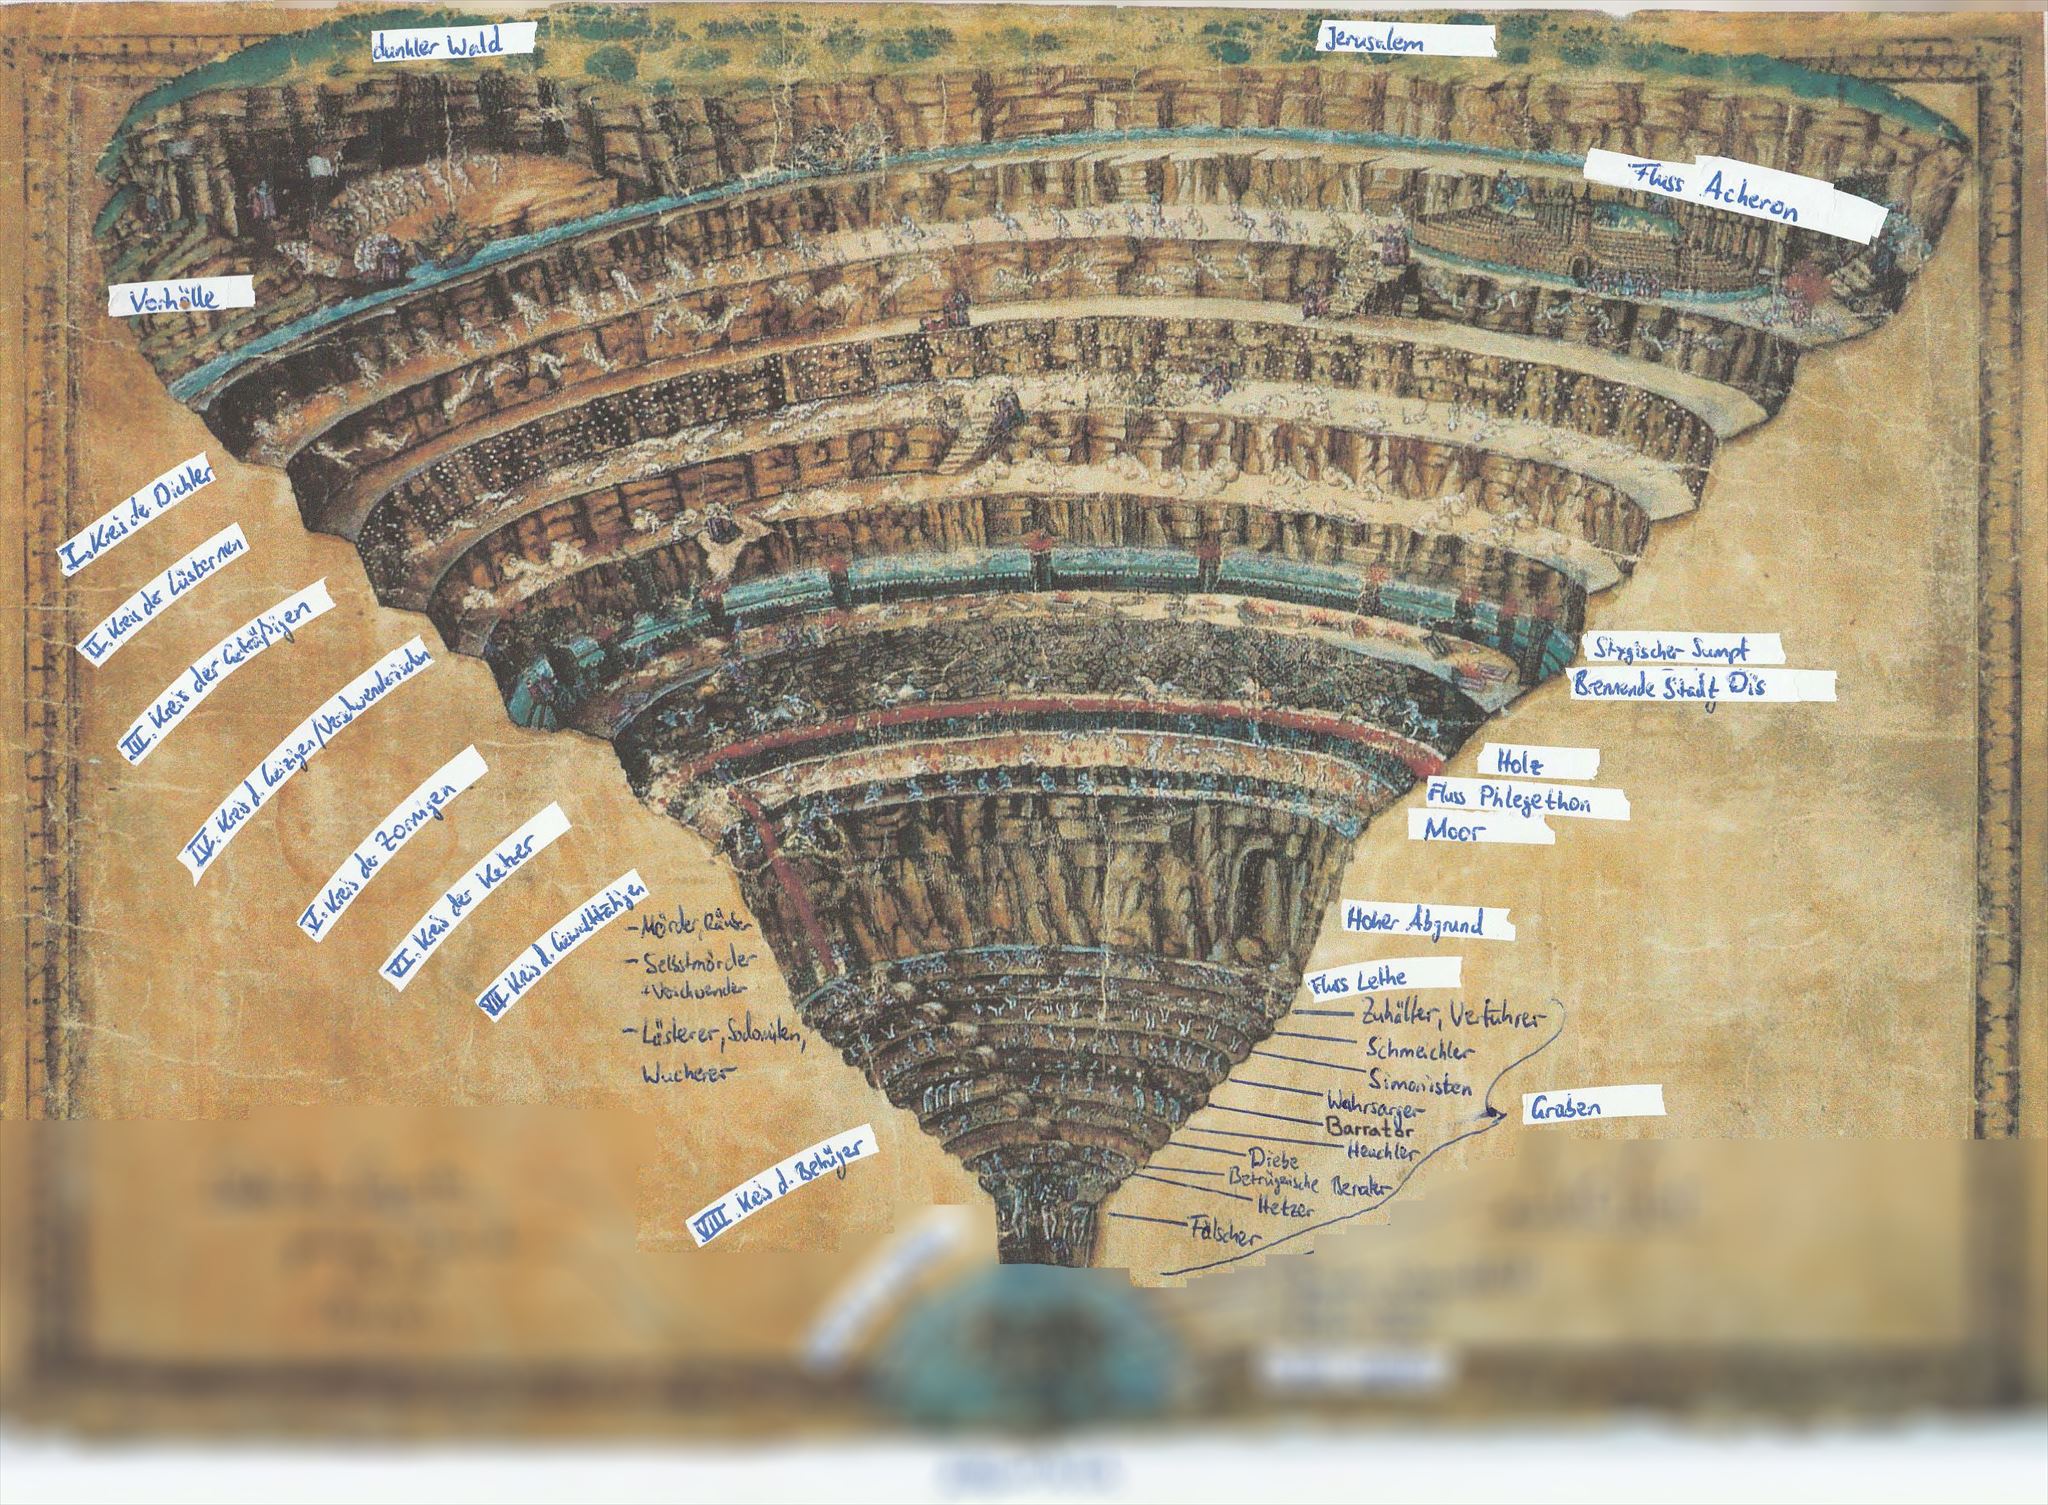 dunkler Wald
Jerusalem
Fluss Acheron
Vorhölle
I. Kreis der Dichter
II. Kreis der Lüsternen
III. Kreis der Gefräßigen
IV. Kreis d. Geizigen/Verschwenderischen
V. Kreis der Zornigen
VI. Kreis der Ketzer
VII Kreis d. Gewalttätigen
- Mörder, Räuber
- Selbstmörder
+ Verschwender
- Lästerer, Sodomiten,
Wucherer
VIII. Kreis d. Betrüger
Stygischer Sumpf
Brennende Stadt Dis
Holz
Fluss Phlegethon
Moor
Hoher Abgrund
Fluss Lethe
Zuhälter, Verführer
Schmeichler
Simonisten
Wahrsarger
Barrator
Heuchler
Diebe
Betrügerische Berater
Hetzer
Fälscher
Graben